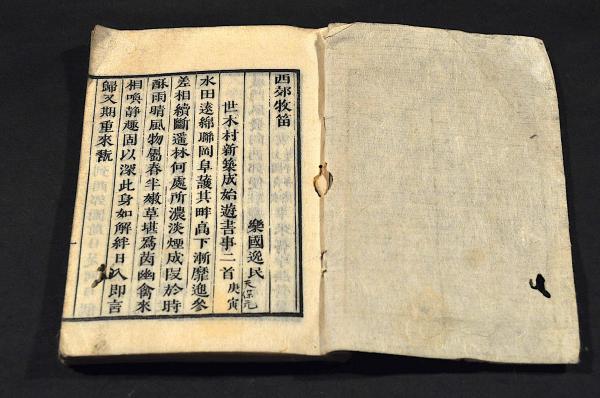 西郊牧笛
樂國逸民 天保元
世木村新築成始遊書事二首 庚寅
水田遠綿聯岡阜護其畔高下漸靡迤參
差相續斷遥林何處所濃淡煙成段於時
酥雨晴風物屬春半嫩草堪為茵幽禽來
相喚静趣固以深此身如解絆日入即言
歸又期重來翫